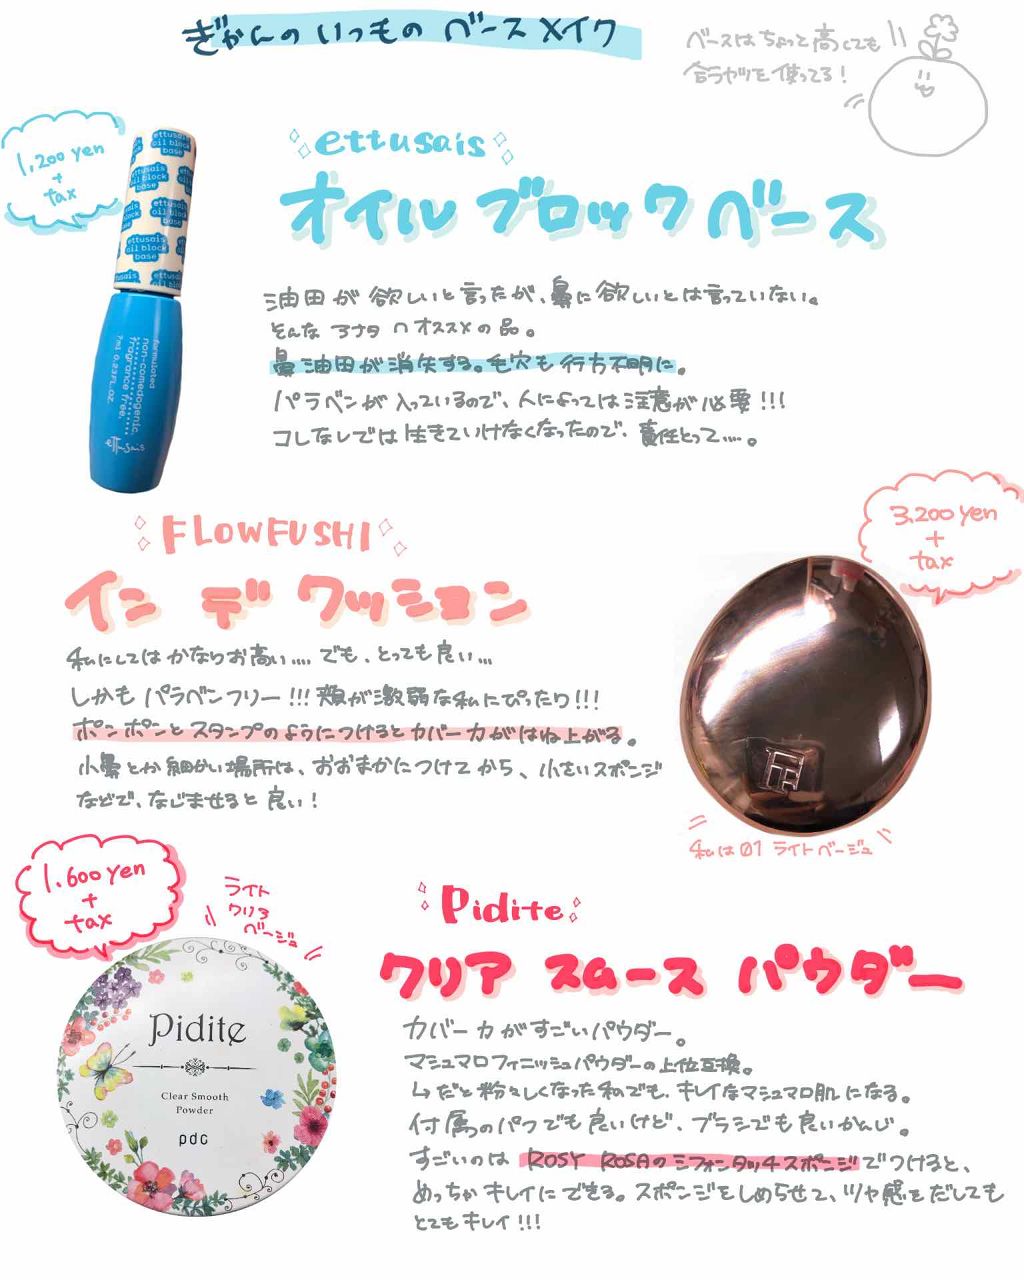 ぎかんの いつもの ベースメイク
ベースはちょっと高くても
合うヤツを使ってる！
1,200 yen
+
tax
ettusais
oil block
base
formulated
non-comedogenic.
fragrance free.
7ml 0.23FL.OZ.
ettusais
ettusais
オイルブロックベース
油田が欲しいと言ったが、鼻に欲しいとは言っていない。
そんな アナタ へ オススメの品。
鼻油田が消失する。毛穴も行方不明に。
パラベンが入っているので、人によっては注意が必要!!!
コレなしでは生きていけなくなったので、責任とって....。
FLOWFUSHI
イン デ クッション
3,200 yen
+
tax
私にしてはかなりお高い.... でも、とっても良い...
しかもパラベンフリー!!! 頬が激弱な私にぴったり!!!
ポンポンとスタンプのようにつけるとカバー力がはね上がる。
小鼻とか細かい場所は、おおまかにつけてから、小さいスポンジ
などで、なじませると良い！
私は01 ライトベージュ
1,600 yen
+
tax
ライト
クリア
ベージュ
Pidite
Clear Smooth
Powder
pdc
Pidite
クリア スムース パウダー
カバー力がすごいパウダー。
マシュマロフィニッシュパウダーの上位互換。
↳だと粉々しくなった私でも、キレイなマシュマロ肌になる。
付属のパフでも良いけど、ブラシでも良いかんじ。
すごいのは ROSY ROSAのシフォンタッチスポンジでつけると、
めっちゃキレイにできる。スポンジをしめらせて、ツヤ感をだしても
とてもキレイ!!!